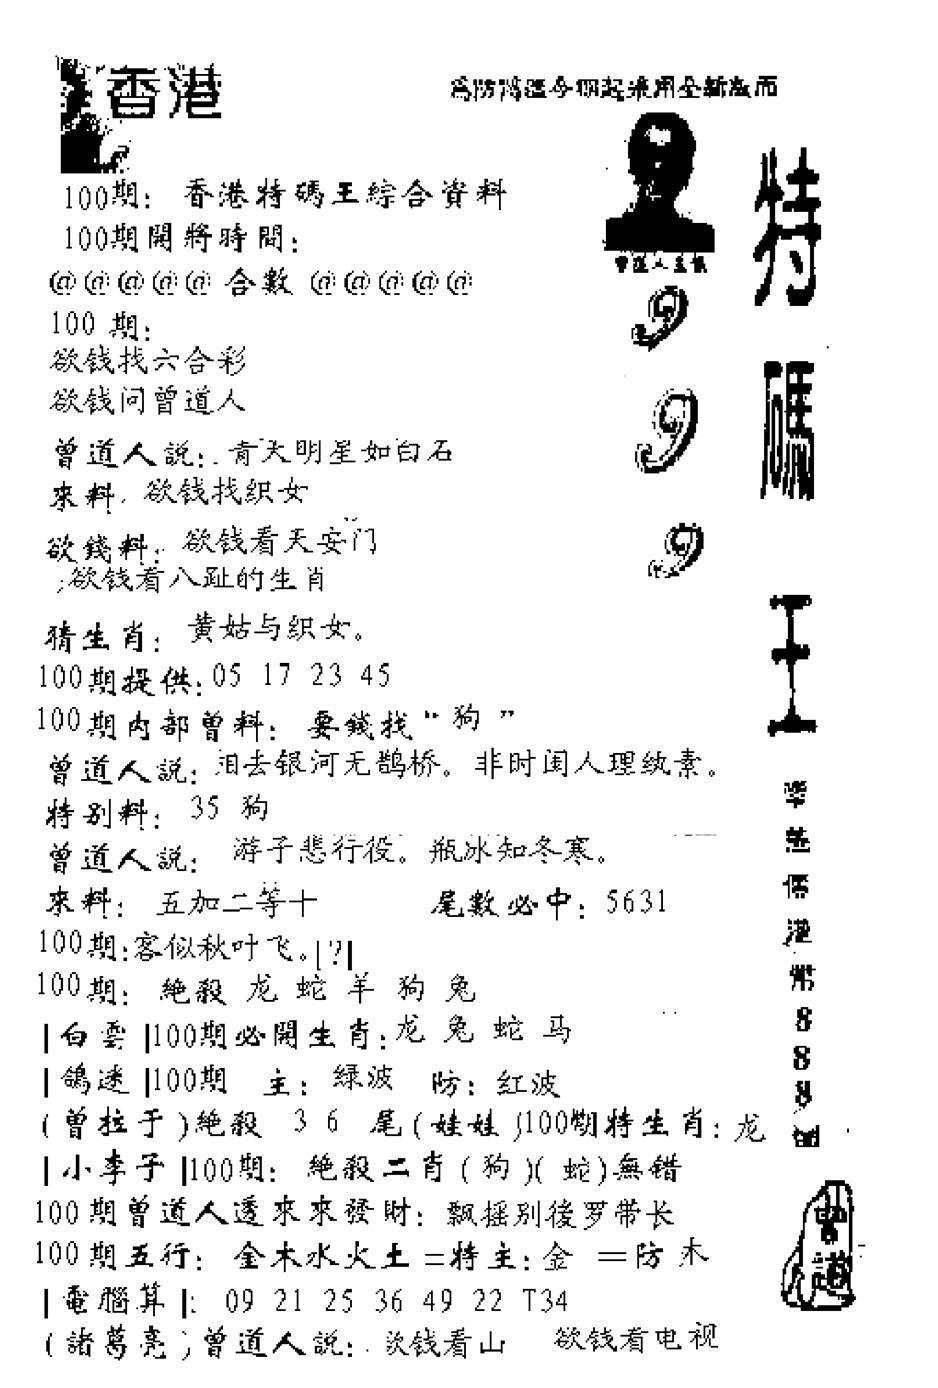 香港
為防偽從今期起采用全新版面
100期: 香港特碼王綜合資料
100期開將時間:
@@@@@ 合數 @@@@@
100 期:
欲钱找六合彩
欲钱问曾道人
曾道人説:青天明星如白石
來料:欲钱找织女
欲錢料:欲钱看天安门
;欲钱看八趾的生肖
猜生肖: 黄姑与织女。
100期提供:05 17 23 45
100期内部曾料: 要錢找“狗”
曾道人説:泪去银河无鹊桥。非时闺人理纨素。
特别料: 35 狗
曾道人説: 游子悲行役。瓶冰知冬寒。
來料: 五加二等十 尾數必中: 5631
100期:客似秋叶飞。|?|
100期: 絶殺 龙 蛇 羊 狗 兔
|白雲|100期必開生肖:龙 兔 蛇 马
|鸽迷|100期 主: 緑波 防: 红波
(曾拉于)絶殺 3 6 尾(娃娃)100期特生肖:龙
|小李子|100期: 絶殺二肖(狗)(蛇)無错
100期曾道人透來來發財: 飘摇别後罗带长
100期五行: 金木水火土=特主:金 =防木
|電腦算|: 09 21 25 36 49 22 T34
(諸葛亮)曾道人説:欲钱看山 欲钱看电视
特碼王
999
港幣888
曾道